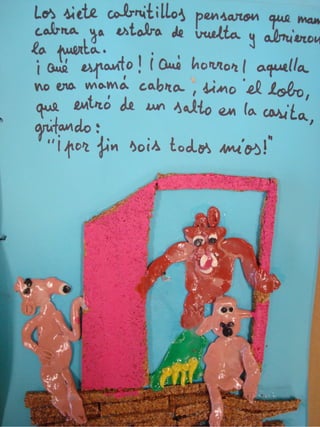 Los siete cabritillos pensaron que mam
cabra ya estaba de vuelta y abrieron
la puerta.
¡Qué espanto! ¡Qué horror! aquella
no era mamá cabra, sino el lobo,
que entró de un salto en la casita,
gritando:
"¡por fin sois todos míos!"